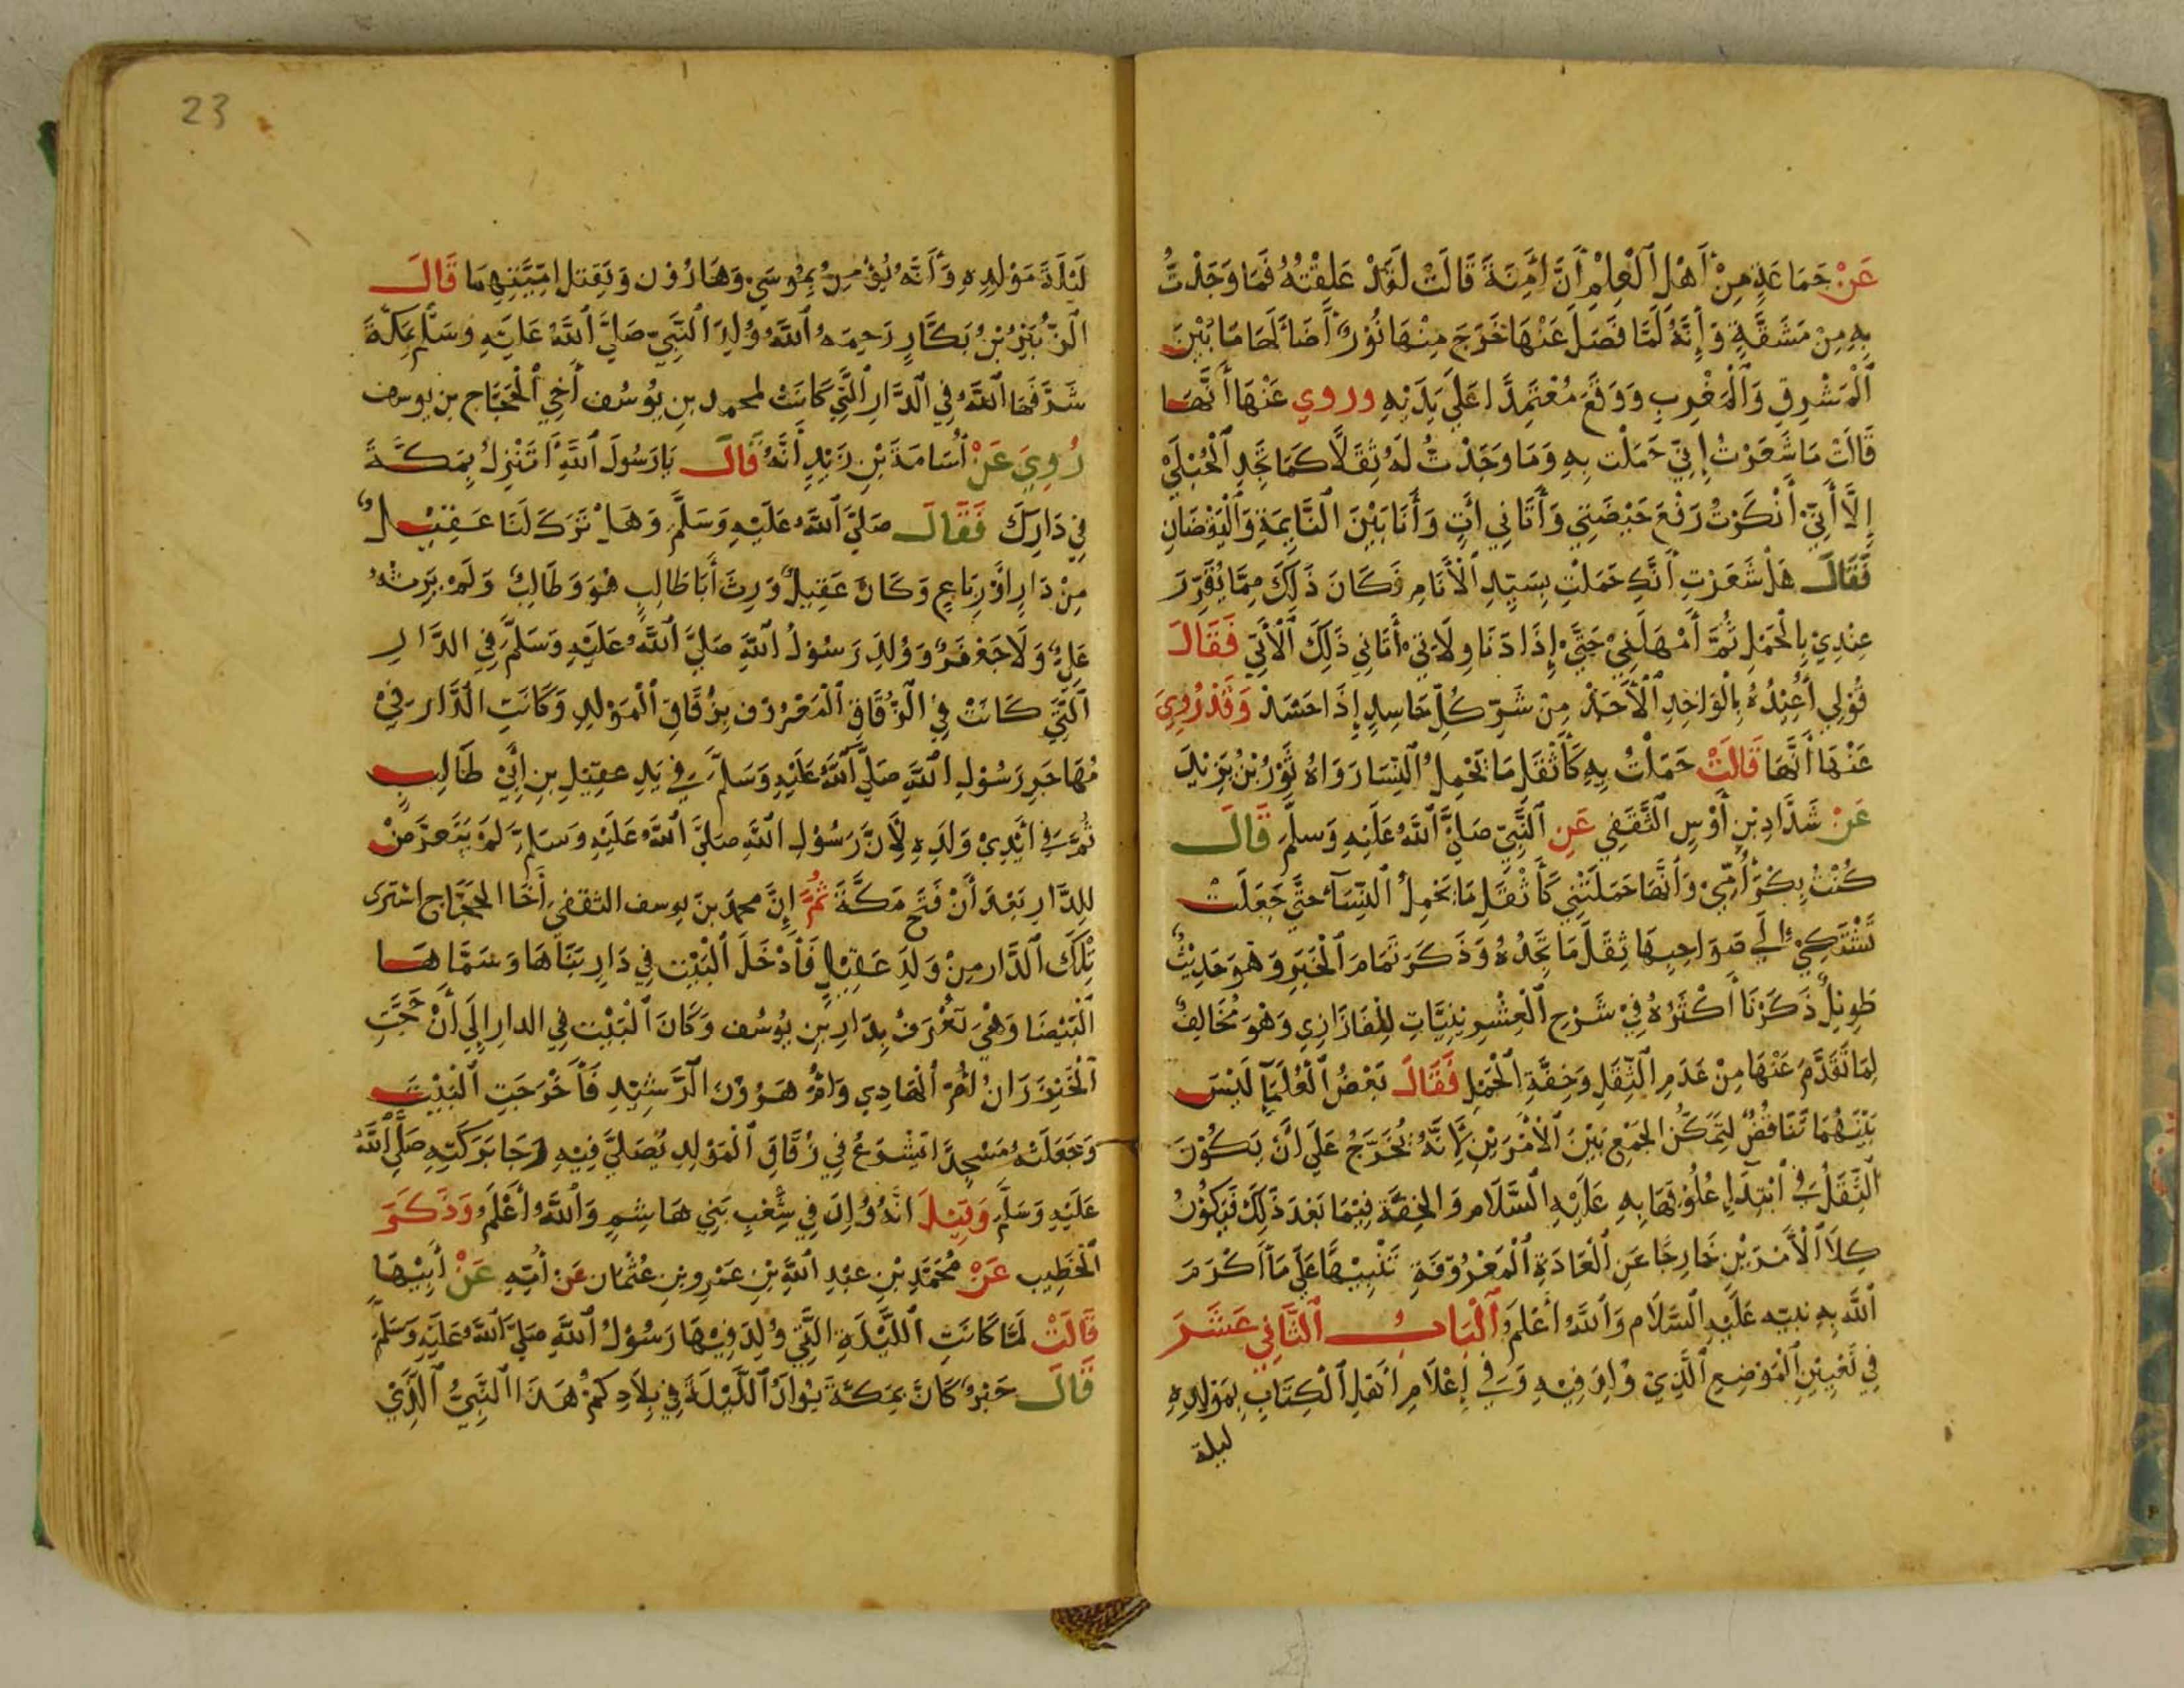 عَنْ جَمَاعَةٍ مِنْ أَهْلِ الْعِلْمِ أَنَّ آمِنَةَ قَالَتْ لَقَدْ عَلِقْتُهُ فَمَا وَجَدْتُ
بِهِ مِنْ مَشَقَّةٍ وَإِنَّهُ لَمَّا فَصَلَ عَنْهَا خَرَجَ مِنْهَا نُوْرٌ أَضَا لَهَا مَا بَيْنَ
الْمَشْرِقِ وَالْمَغْرِبِ وَوَقَعَ مُعْتَمِدًا عَلَى يَدَيْهِ وروي عَنْهَا أَنَّهَا
قَالَتْ مَا شَعَرْتُ إِنِّي حَمَلْتُ بِهِ وَمَا وَجَدْتُ لَهُ ثِقَلًا كَمَا تَجِدِ الْحُبْلَى
إِلَّا أَنِّي أَنْكَرْتُ رَفْعَ حَيْضَتِي وَأَتَانِي آتٍ وَأَنَا بَيْنَ النَّايِمَةِ وَالْيَقْضَانِ
فَقَالَ هَلْ شَعَرْتِ أَنَّكِ حَمَلْتِ بِسَيِّدِ الْأَنَامِ فَكَانَ ذَلِكَ مِمَّا يُقَرِّرَ
عِنْدِيْ بِالْحَمْلِ ثُمَّ أَمْهَلَنِيْ حَتَّى إِذَا دَنَا وِلَادَتِي أَتَانِي ذَلِكَ الْآتِي فَقَالَ
قُوْلِي أُعِيْذُهُ بِالْوَاحِدِ الْأَحَدْ مِنْ شَرِّ كُلِّ حَاسِدٍ إِذَا حَسَدْ وَقَدْ رُوِيَ
عَنْهَا أَنَّهَا قَالَتْ حَمَلْتُ بِهِ كَأَثْقَلِ مَا تَحْمِلُ النِّسَا رَوَاهُ ثَوْرُ بْنُ يَزِيْدَ
عَنْ شَدَّادِ بْنِ أَوْسِ الثَّقَفِي عَنِ النَّبِيِّ صَلَّى اللَّهُ عَلَيْهِ وَسَلَّمَ قَالَ
كُنْتُ بِكْرَ أُمِّي وَأَنَّهَا حَمَلَتْنِي كَأَثْقَلِ مَا تَحْمِلُ النِّسَآءِ حَتَّى جَعَلَتْ
تَشْتَكِيْ إِلَى صَوَاحِبِهَا ثِقَلَ مَا تَجِدُهُ وَذَكَرَ تَمَامَ الْخَبَرِ وَهُوَ حَدِيْثٌ
طَوِيْلٌ ذَكَرْنَا أَكْثَرَهُ فِيْ شَرْحِ الْعِشْرِيْنِيَّاتِ لِلْفَازَازِي وَهُوَ مُخَالِفٌ
لِمَا تَقَدَّمَ عَنْهَا مِنْ عَدَمِ الثِّقَلِ وَخِفَّةِ الْحَمْلِ فَقَالَ بَعْضُ الْعُلَمَآ لَيْسَ
بَيْنَهُمَا تَنَاقُضٌ لِتَمَكُّنِ الْجَمْعِ بَيْنَ الْأَمْرَيْنِ لِأَنَّهُ يُخَرَّجُ عَلَى أَنْ يَكُوْنَ
الثِّقَلُ فِي ابْتِدَاءِ عُلُوْقِهَا بِهِ عَلَيْهِ السَّلَام وَالْخِفَّة فِيْمَا بَعْدَ ذَلِكَ فَيَكُوْنُ
كِلَا الْأَمْرَيْنِ خَارِجًا عَنِ الْعَادَةِ الْمَعْرُوْفَةِ تَنْبِيْهًا عَلَى مَا أَكْرَمَ
اللَّهُ بِهِ نبيّه عَلَيْهِ السَّلَام وَاللَّهُ أَعْلَمُ الْبَابُ الثَّانِي عَشَرَ
فِي تَعْيِيْنِ الْمَوْضِعِ الَّذِيْ وُلِدَ فِيْهِ وَفِي إِعْلَامِ أَهْلِ الْكِتَابِ بِمَوْلِدِهِ
ليلة
23
لَيْلَةَ مَوْلِدِهِ وَأَنَّهُ يُؤْمِنُ بِمُوسَى وَهَارُوْن وَيَقتل امتيهِمَا قَالَ
الزُّبَيْرُ بْنُ بَكَّارٍ رَحِمَهُ اللَّهُ وُلِدَ النَّبِيّ صَلَّى اللَّهُ عَلَيْهِ وَسَلَّمَ بِمَكَّةَ
شَرَّفَهَا اللَّهُ فِي الدَّارِ الَّتِي كَانَتْ لمحمد بن يُوْسُف أَخِي الْحَجَّاج بن يوسف
رُوِيَ عَنْ أُسَامَةَ بْنِ زَيْدٍ أَنَّهُ قَالَ يَا رَسُولَ اللَّهِ أَتَنْزِلُ بِمَكَّةَ
فِي دَارِكَ فَقَالَ صَلَّى اللَّهُ عَلَيْهِ وَسَلَّمَ وَهَلْ تَرَكَ لَنَا عَقِيْلٌ
مِنْ دَارٍ أَوْ رِبَاعٍ وَكَانَ عَقِيلٌ وَرِثَ أَبَا طَالِبٍ هُوَ وَطَالِبٌ وَلَمْ يَرِثْهُ
عَلِيٌّ وَلَا جَعْفَرٌ وَوُلِدَ رَسُوْلُ اللَّهِ صَلَّى اللَّهُ عَلَيْهِ وَسَلَّمَ فِي الدَّارِ
الَّتِي كَانَتْ فِي الزُّقَاقِ الْمَعْرُوْف بِزُقَاقِ الْمَوْلِدِ وَكَانَتِ الدَّار فِيْ
مُهَاجَرِ رَسُوْلِ اللَّهِ صَلَّى اللَّهُ عَلَيْهِ وَسَلَّمَ فِي يَدِ عقِيْلِ بنِ أَبِيْ طَالِبٍ
ثُمَّ فِي أَيْدِيْ وَلَدِهِ لِأَنَّ رَسُوْلَ اللَّهِ صَلَّى اللَّهُ عَلَيْهِ وَسَلَّمَ لَمْ يَتَعَرَّضْ
لِلدَّارِ بَعْدَ أَنْ فَتَحَ مَكَّةَ ثُمَّ إِنَّ محمدَ بنَ يوسف الثقفي أَخَا الحَجَّاجِ اشترى
تِلْكَ الدَّار مِنْ وَلَدِ عَقِيْلٍ فَأَدْخَلَ الْبَيْت فِي دَارٍ بَنَاهَا وَسَمَّاهَا
الْبَيْضَا وَهْيَ تُعْرَفُ بِدَارِ بنِ يُوْسُف وَكَانَ الْبَيْت فِي الدار إِلَى أَنْ حَجَّتِ
الْخَيْزَرَانُ أُمّ الْهَادِي وَأُمُّ هَرُوْنَ الرَّشِيْدِ فَأَخْرَجَتِ الْبَيْتَ
وَجَعَلَتْهُ مَسْجِدًا يَشْرَعُ فِي زُقَاقِ الْمَوْلِدِ يُصَلَّى فِيْهِ رَجَا بَرَكَتِهِ صَلَّى اللَّهُ
عَلَيْهِ وَسَلَّمَ وَقِيْلَ انَّهُ وُلِدَ فِي شِعْبِ بَنِي هَاشِمٍ وَاللَّهُ أَعْلَمُ وَذَكَرَ
الْخَطِيب عَنْ مُحَمَّدِ بْنِ عبْدِ اللَّهِ بْنِ عَمْرِو بنِ عُثْمَان عَنْ أُمِّهِ عَنْ أَبِيْهَا
قَالَتْ لَمَّا كَانَتِ اللَّيْلَةِ الَّتِي وُلِدَ فِيْهَا رَسُوْلُ اللَّهِ صَلَّى اللَّهُ عَلَيْهِ وَسَلَّمَ
قَالَ حَبْرٌ كَانَ بِمَكَّةَ يُوْلَدُ اللَّيْلَةَ فِي بِلَادِكُمْ هَذَا النَّبِيُّ الَّذِيْ